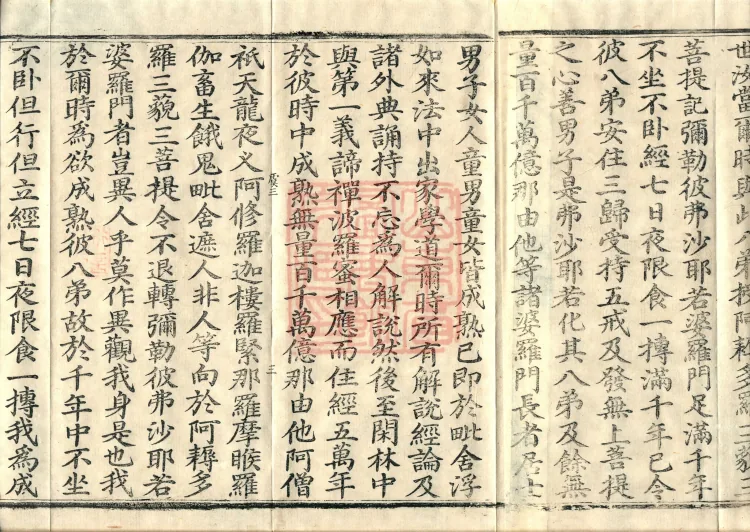 世汝當爾時與此八弟授阿耨多羅三藐三
菩提記彌勒彼弗沙耶若婆羅門足滿千年
不坐不卧經七日夜限食一摶滿千年已令
彼八弟安住三歸受持五戒及發無上菩提
之心善男子是弗沙耶若化其八弟及餘無
量百千萬億那由他等諸婆羅門長者居士
男子女人童男童女皆成熟已即於毗舍浮
如來法中出家學道爾時所有解說經論及
諸外典誦持不忘為人解說然後至閑林中
與第一義諦禪波羅蜜相應而住經五萬年
於彼時中成熟無量百千萬億那由他阿僧
三
祇天龍夜叉阿修羅迦樓羅緊那羅摩睺羅
伽畜生餓鬼毗舍遮人非人等向於阿耨多
羅三藐三菩提令不退轉彌勒彼弗沙耶若
婆羅門者豈異人乎莫作異觀我身是也我
於爾時為欲成熟彼八弟故於千年中不坐
不卧但行但立經七日夜限食一摶我為成